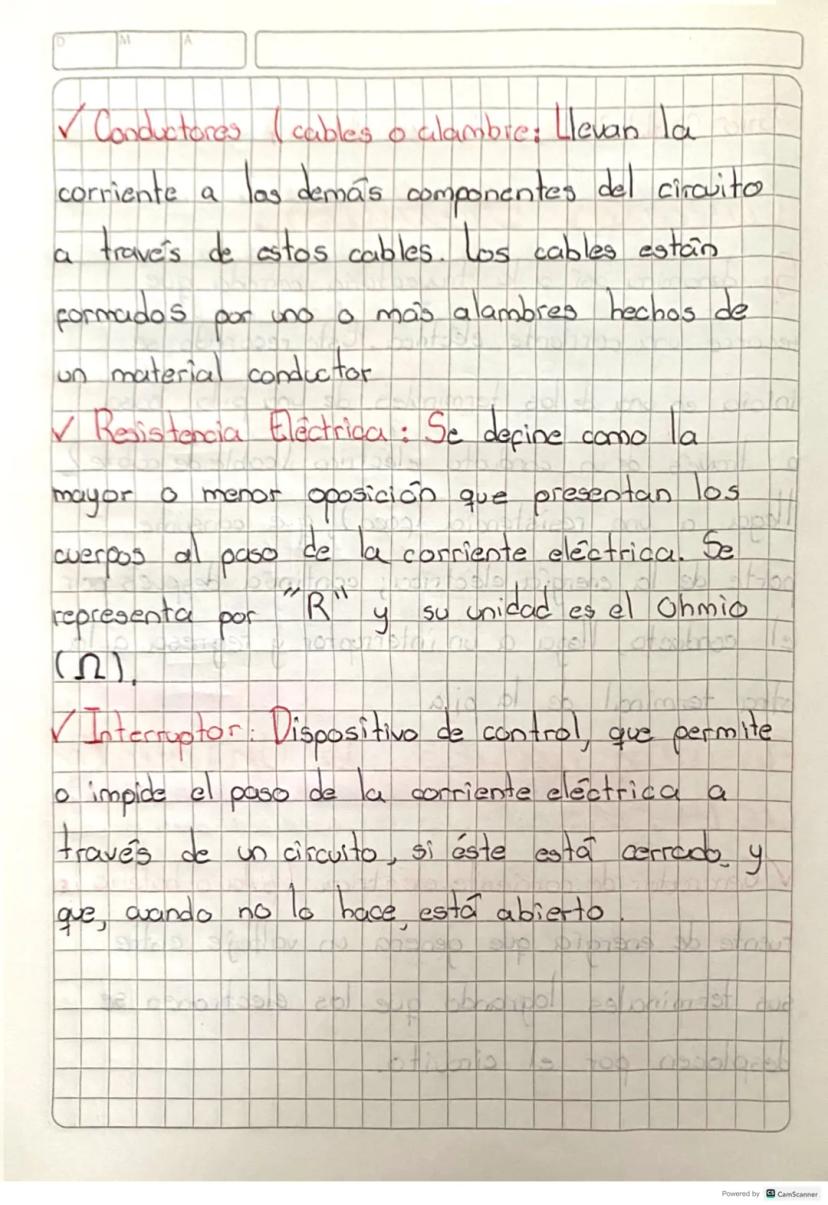 D M A
✓ Conductores (cables o alambre: Llevan la
corriente a los demás componentes del circuito
a través de estos cables. Los cables están
formados por uno o más alambres hechos de
un material conductor
✓ Resistencia Eléctrica: Se define como la
mayor o menor oposición que presentan los
cuerpos al paso de la corriente eléctrica. Se
representa por "R" y su unidad es el Ohmio
(Ω).
✓ Interruptor: Dispositivo de control, que permite
o impide el paso de la corriente eléctrica a
través de un circuito, si éste está cerrado y
que, cuando no lo hace, está abierto.
Powered by CS CamScanner